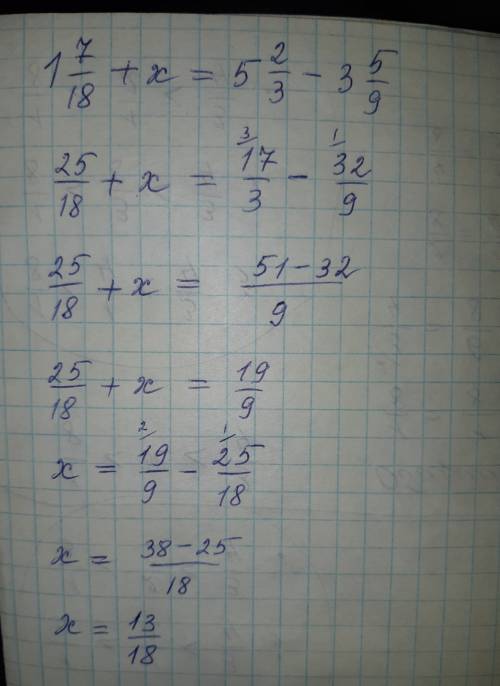 1 7/18 + x = 5 2/3 - 3 5/9
25/18 + x = 3/ 17/3 - 1/ 32/9
25/18 + x = 51-32/9
25/18 + x = 19/9
x = 2/ 19/9 - 1/ 25/18
x = 38-25/18
x = 13/18